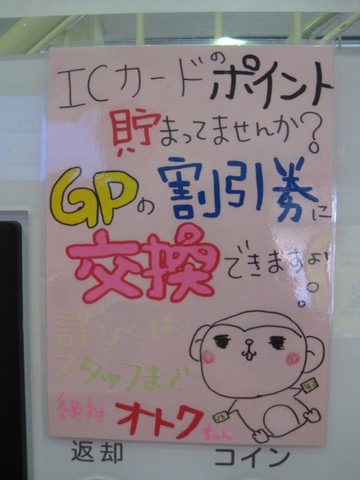 ICカードのポイント
貯まってませんか?
GPの割引券に
交換できますよ。
詳しくは
スタッフまで
絶対オトクちゃん
返却
コイン